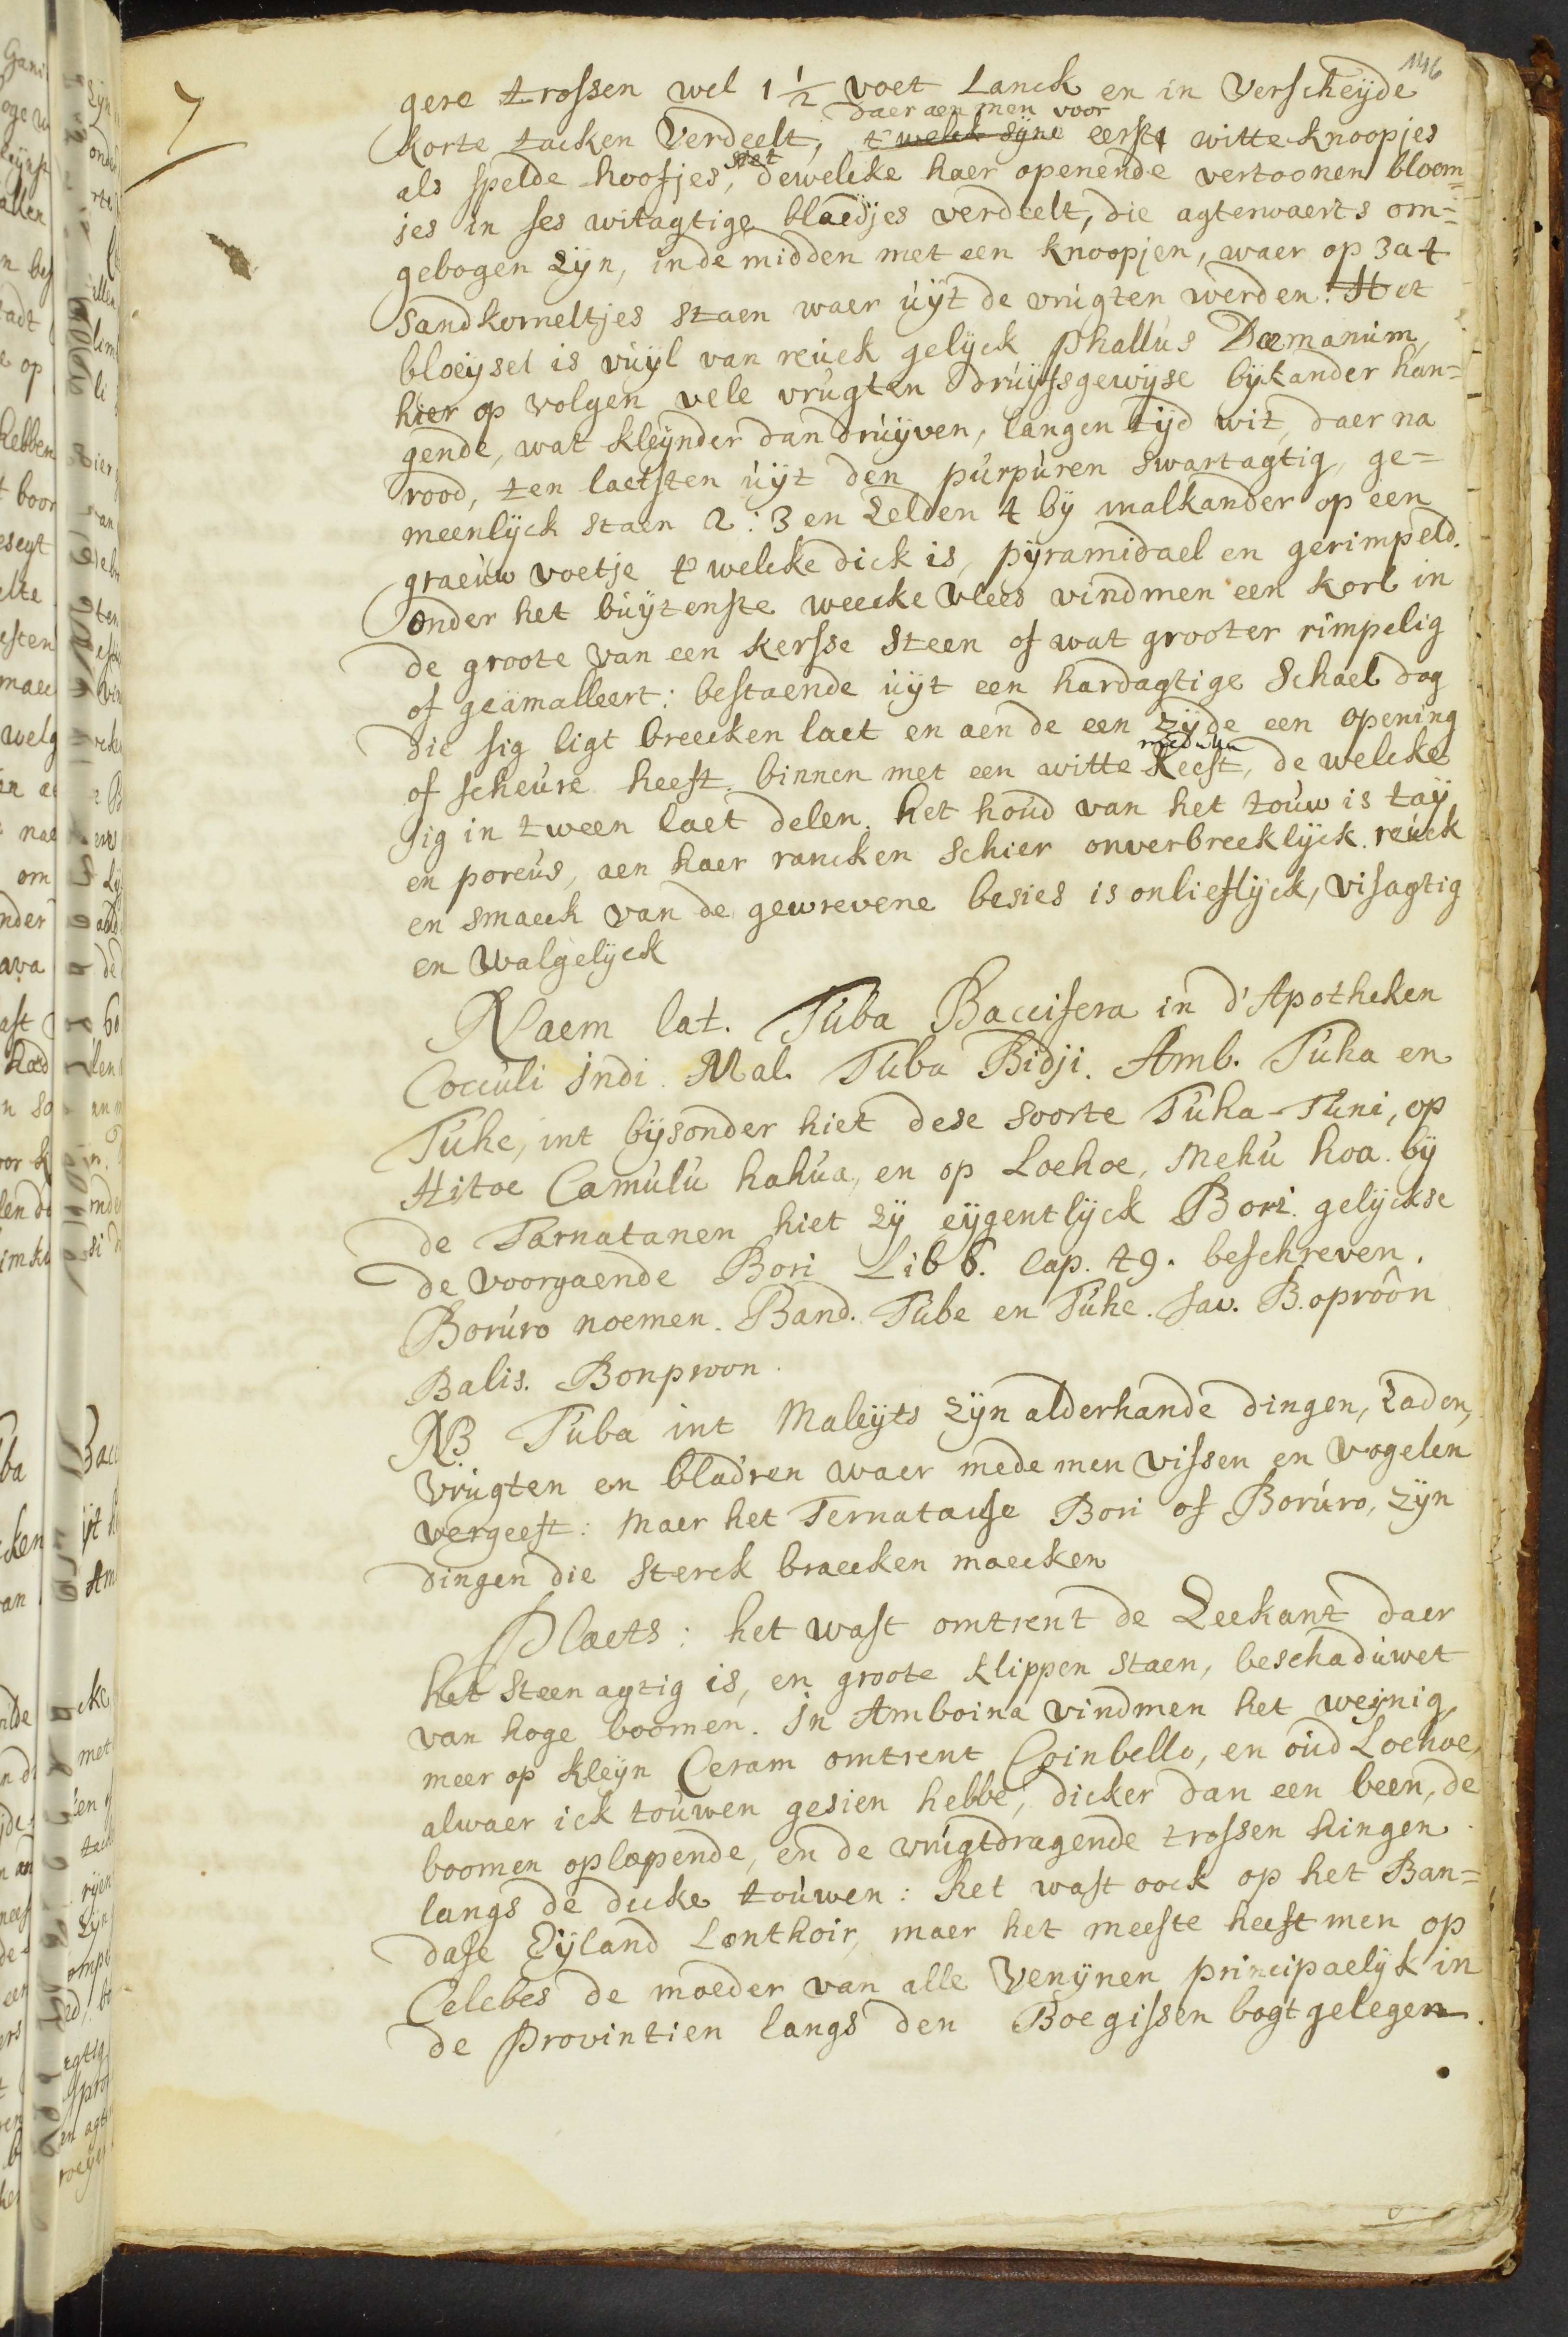 146
7
gere trossen wel 1 1/2 voet Lanck en in Verscheijde
daer aen men voor
korte tacken Verdeelt, t welck sijne eerst witte knoopjes
siet
als spelde hoofjes, dewelcke haer openende vertoonen bloem=
jes in ses witagtige blaedjes verdeelt, die agterwaerts om=
gebogen zijn, inde midden met een knoopjen, waer op 3 a 4
Sandkorneltjes staen waer uijt de vrugten werden. Het
bloeijsel is vuijl van reuck gelijck phallus Dæmanum,
hier op volgen vele vrugten druijfsgewijse bij kander han=
gende, wat kleijnder dan druijven, langen tijd wit, daer na
rood, ten laetsten uijt den purpuren swartagtig, ge=
meenlijck staen 2: 3 en zelden 4 bij malkander op een
graeuw voetje t welcke dick is, pijramidael en gerimpeld.
onder het buijtenste weecke vlees vindmen een korl in
de groote van een kersse steen of wat grooter rimpelig
of geämalleert: bestaende uijt een hardagtige Schael dog
die sig ligt breecken laet en aen de een zijde een opening
of scheure heeft. binnen met een witte Keest, de welcke
sig in tween laet delen. het houd van het touw is taij
en poreus, aen haer rancken schier onverbreeklijck. reuck
en smaeck van de gewrevene besies is onlieflijck, visagtig
en walgelijck
Naem lat. Tuba Baccifera in d'Apotheken
Cocculi Indi. Mal. Tuba Bidji. Amb. Tuha en
Tuhe, int bijsonder hiet dese soorte Tuha-Tuni, op
Hitoe Camulu hahua, en op Loehoe, Mehu hoa. bij
de Tarnatanen hiet zij eijgentlijck Bori. gelijckse
de voorgaende Bori Lib 8. Cap. 49. beschreven.
Boruro noemen. Band. Tube en Tuhe. Jav. B.oprôôn
Balis. Bonpwon.
NB Tuba int Maleijts zijn alderhande dingen, zaden,
vrugten en bladren waer mede men vissen en vogelen
vergeeft: Maer het Ternataise Bori of Boruro, zijn
dingen die sterck braecken maecken
Plaets: het wast omtrent de Zeekant daer
het steenagtig is, en groote klippen staen, beschaduwet
van hoge boomen. In Amboina vindmen het weijnig,
meer op kleijn Ceram omtrent Coinbello, en oud Loehoe,
alwaer ick touwen gesien hebbe, dicker dan een been, de
boomen oplopende, en de vrugtdragende trossen hingen
langs de dicke touwen: het wast oock op het Ban=
dase Eijland Lonthoir, maer het meeste heeft men op
Celebes de moeder van alle Venijnen principaelijk in
de provintien langs den Boegissen bogt gelegen.